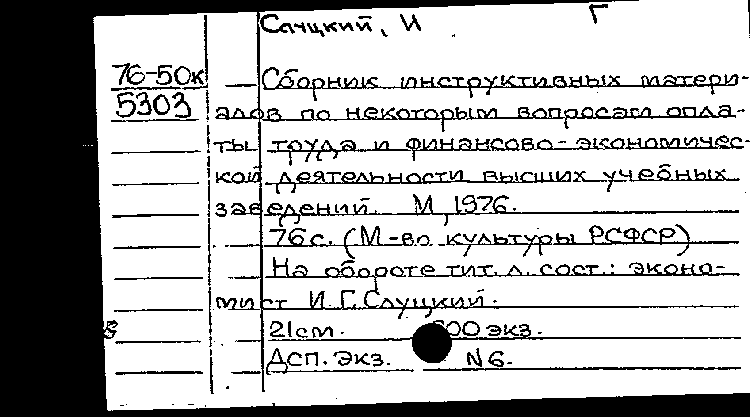 Слуцкий, И Г
76-50к — Сборник инструктивных матери-
5303 алов по некоторым вопросам опла-
ты труда и финансово-экономичес-
кой деятельности высших учебных
заведений. М, 1976.
76 с. (М-во культуры РСФСР)
На обороте тит. л. сост.: эконо-
мист И.Г. Слуцкий.
21 см. 00 экз.
Дсп. экз. N 6.